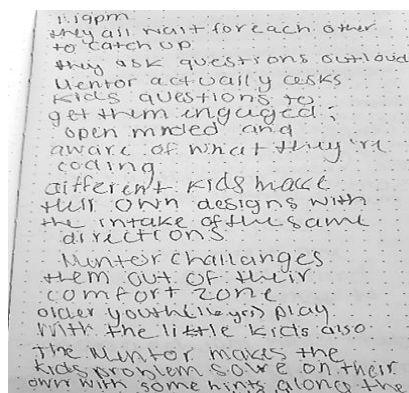 1:19pm
they all wait for each other
to catch up
they ask questions outloud
Mentor actually asks
kids questions to
get them engaged;
open minded and
aware of what they're
coding
different kids make
their own designs with
the intake of the same
directions
Mentor challanges
them out of their
comfort zone
older youth play
with the little kids also
The Mentor makes the
kids problem solve on their
own with some hints along the